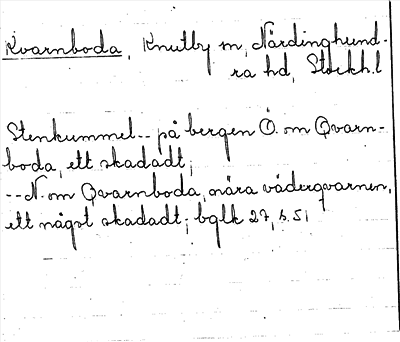 Kvarnboda, Knutby sn, Närdinghund-
ra hd, Stockh.l
Stenkummel -- på bergen Ö. om Qvarn-
boda, ett skadadt;
-- N. om Qvarnboda, nära väderqvarnen,
ett något skadadt; bglk 27, s. 5,